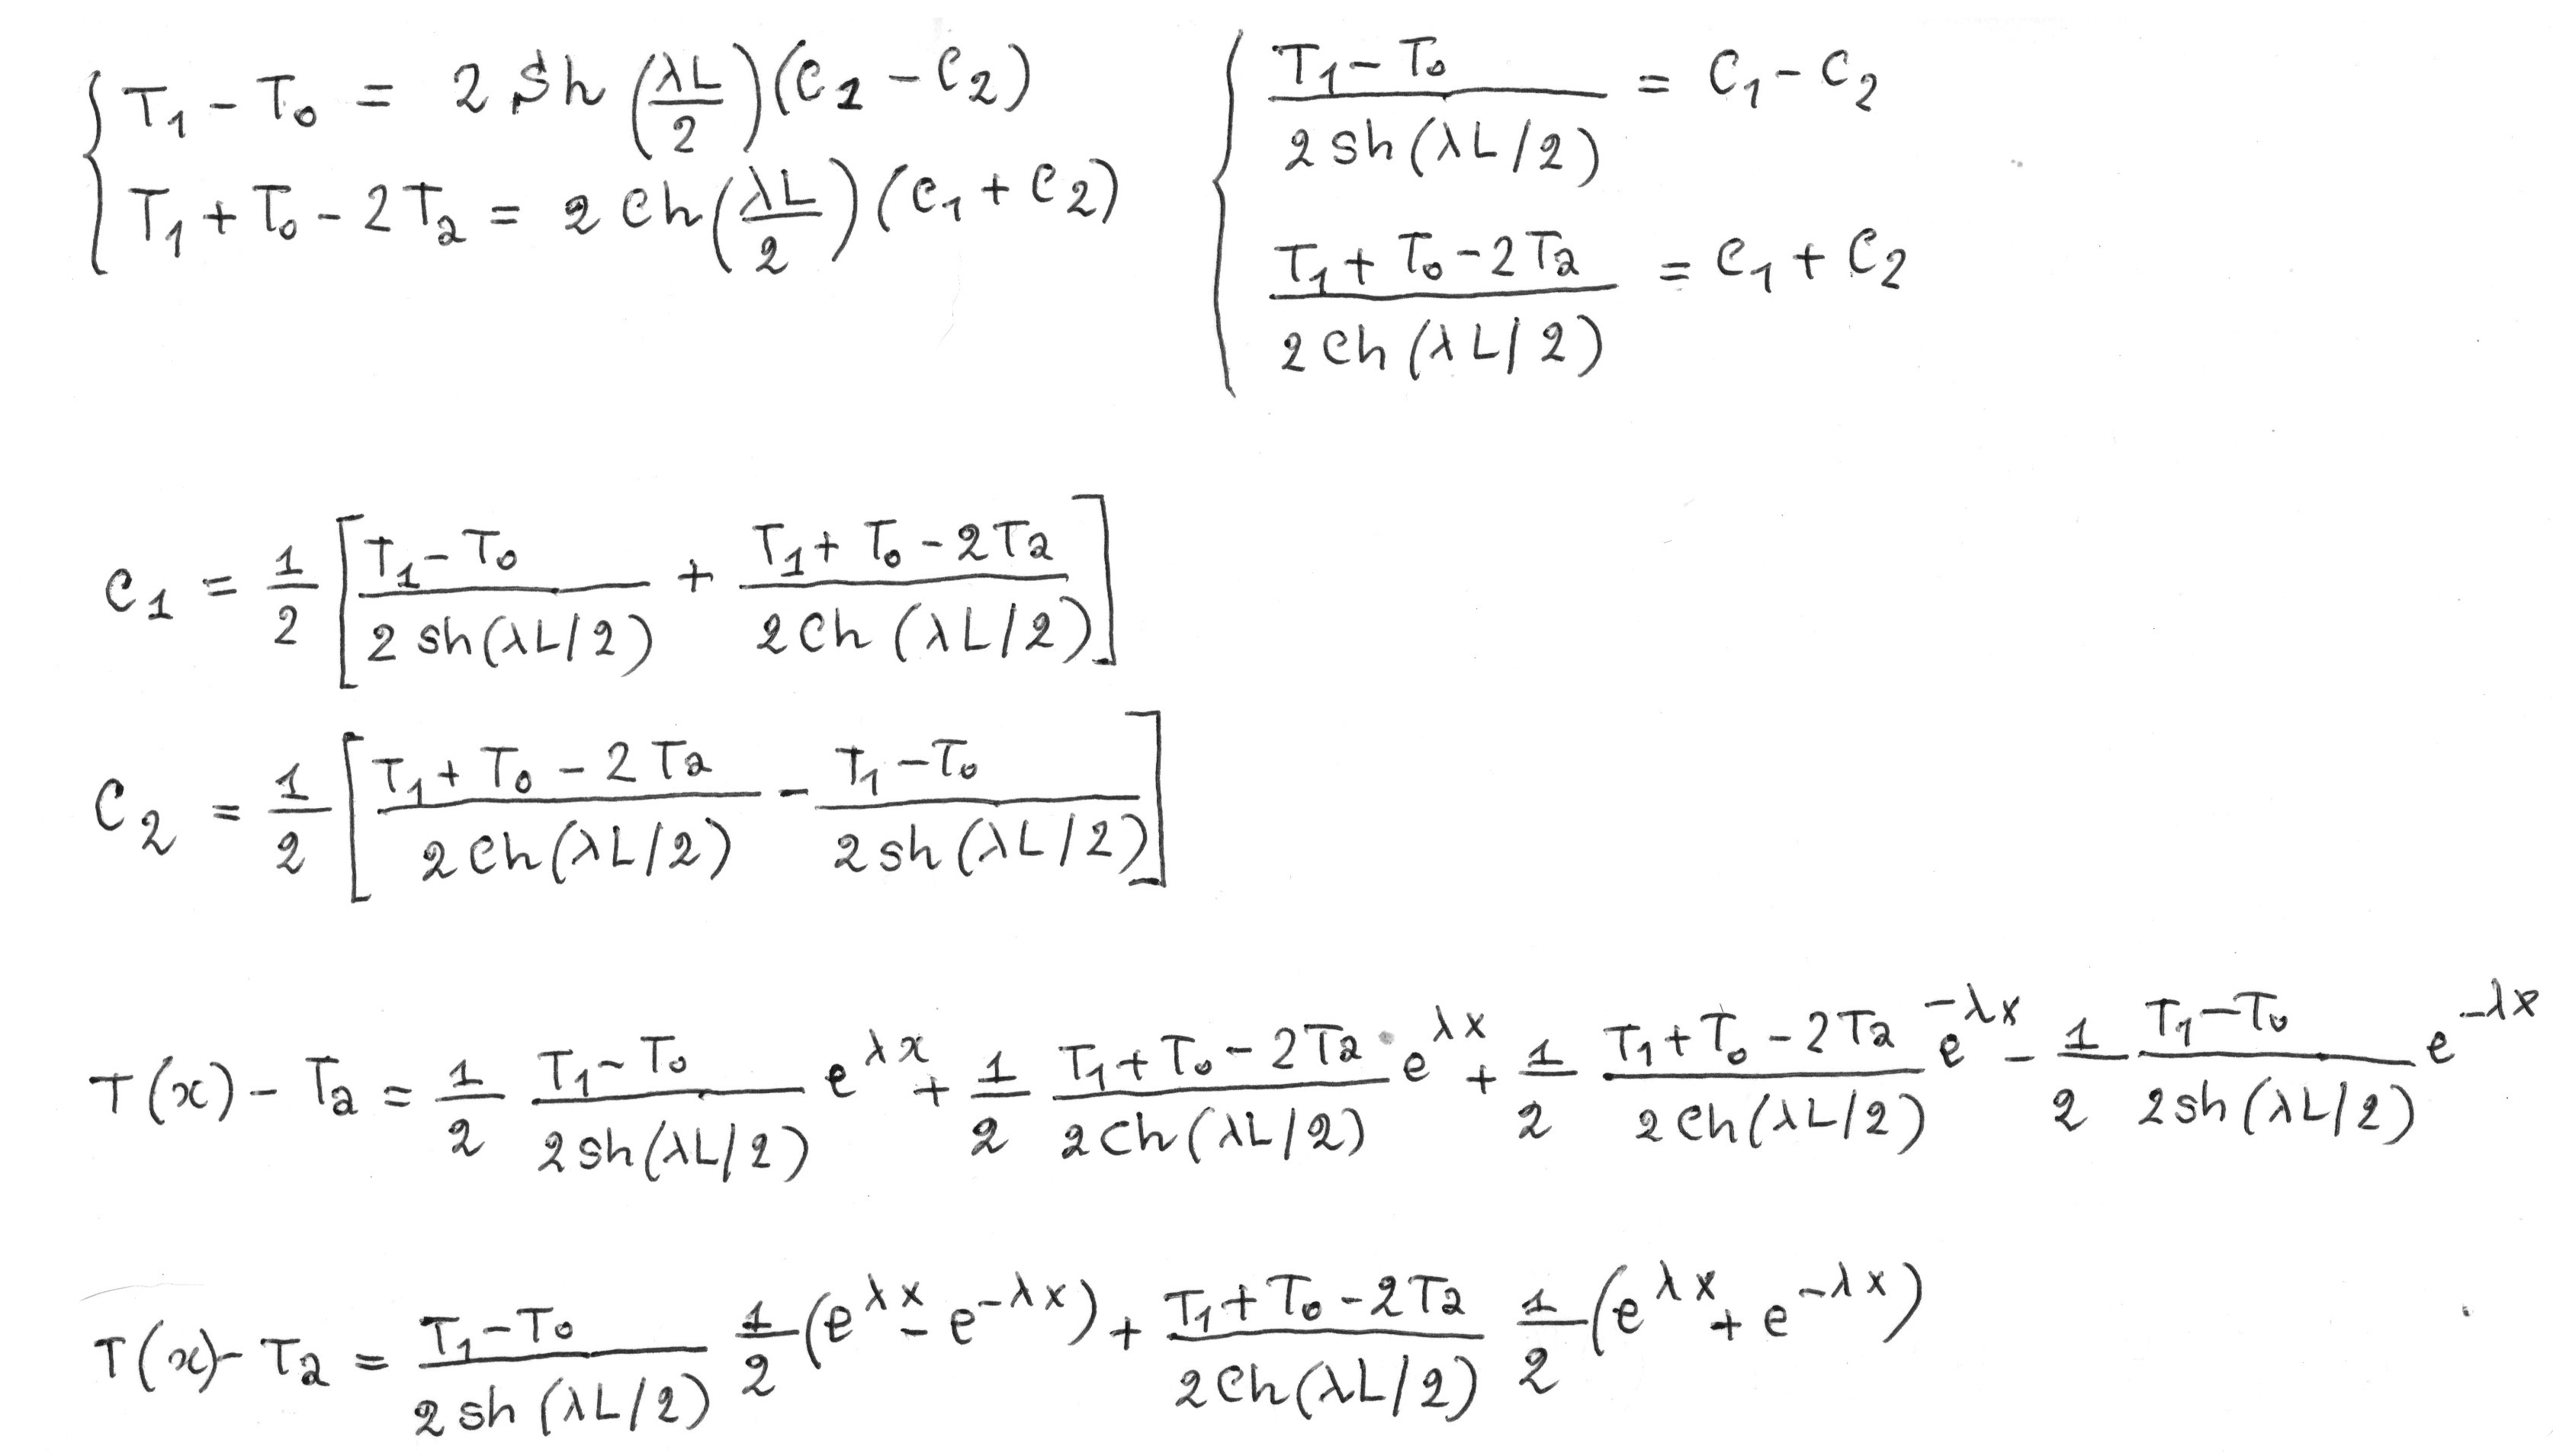 { T₁ - T₀ = 2 Sh (λL/2) (C₁ - C₂)
T₁ + T₀ - 2Tₐ = 2 Ch (λL/2) (C₁ + C₂)
{ (T₁ - T₀) / (2 sh (λL/2)) = C₁ - C₂
(T₁ + T₀ - 2Tₐ) / (2 Ch (λL/2)) = C₁ + C₂
C₁ = 1/2 [ (T₁ - T₀) / (2 sh (λL/2)) + (T₁ + T₀ - 2Tₐ) / (2 Ch (λL/2)) ]
C₂ = 1/2 [ (T₁ + T₀ - 2Tₐ) / (2 Ch (λL/2)) - (T₁ - T₀) / (2 sh (λL/2)) ]
T(x) - Tₐ = 1/2 (T₁ - T₀) / (2 sh (λL/2)) e^(λx) + 1/2 (T₁ + T₀ - 2Tₐ) / (2 Ch (λL/2)) e^(λx) + 1/2 (T₁ + T₀ - 2Tₐ) / (2 Ch (λL/2)) e^(-λx) - 1/2 (T₁ - T₀) / (2 sh (λL/2)) e^(-λx)
T(x) - Tₐ = (T₁ - T₀) / (2 sh (λL/2)) 1/2 (e^(λx) - e^(-λx)) + (T₁ + T₀ - 2Tₐ) / (2 Ch (λL/2)) 1/2 (e^(λx) + e^(-λx))